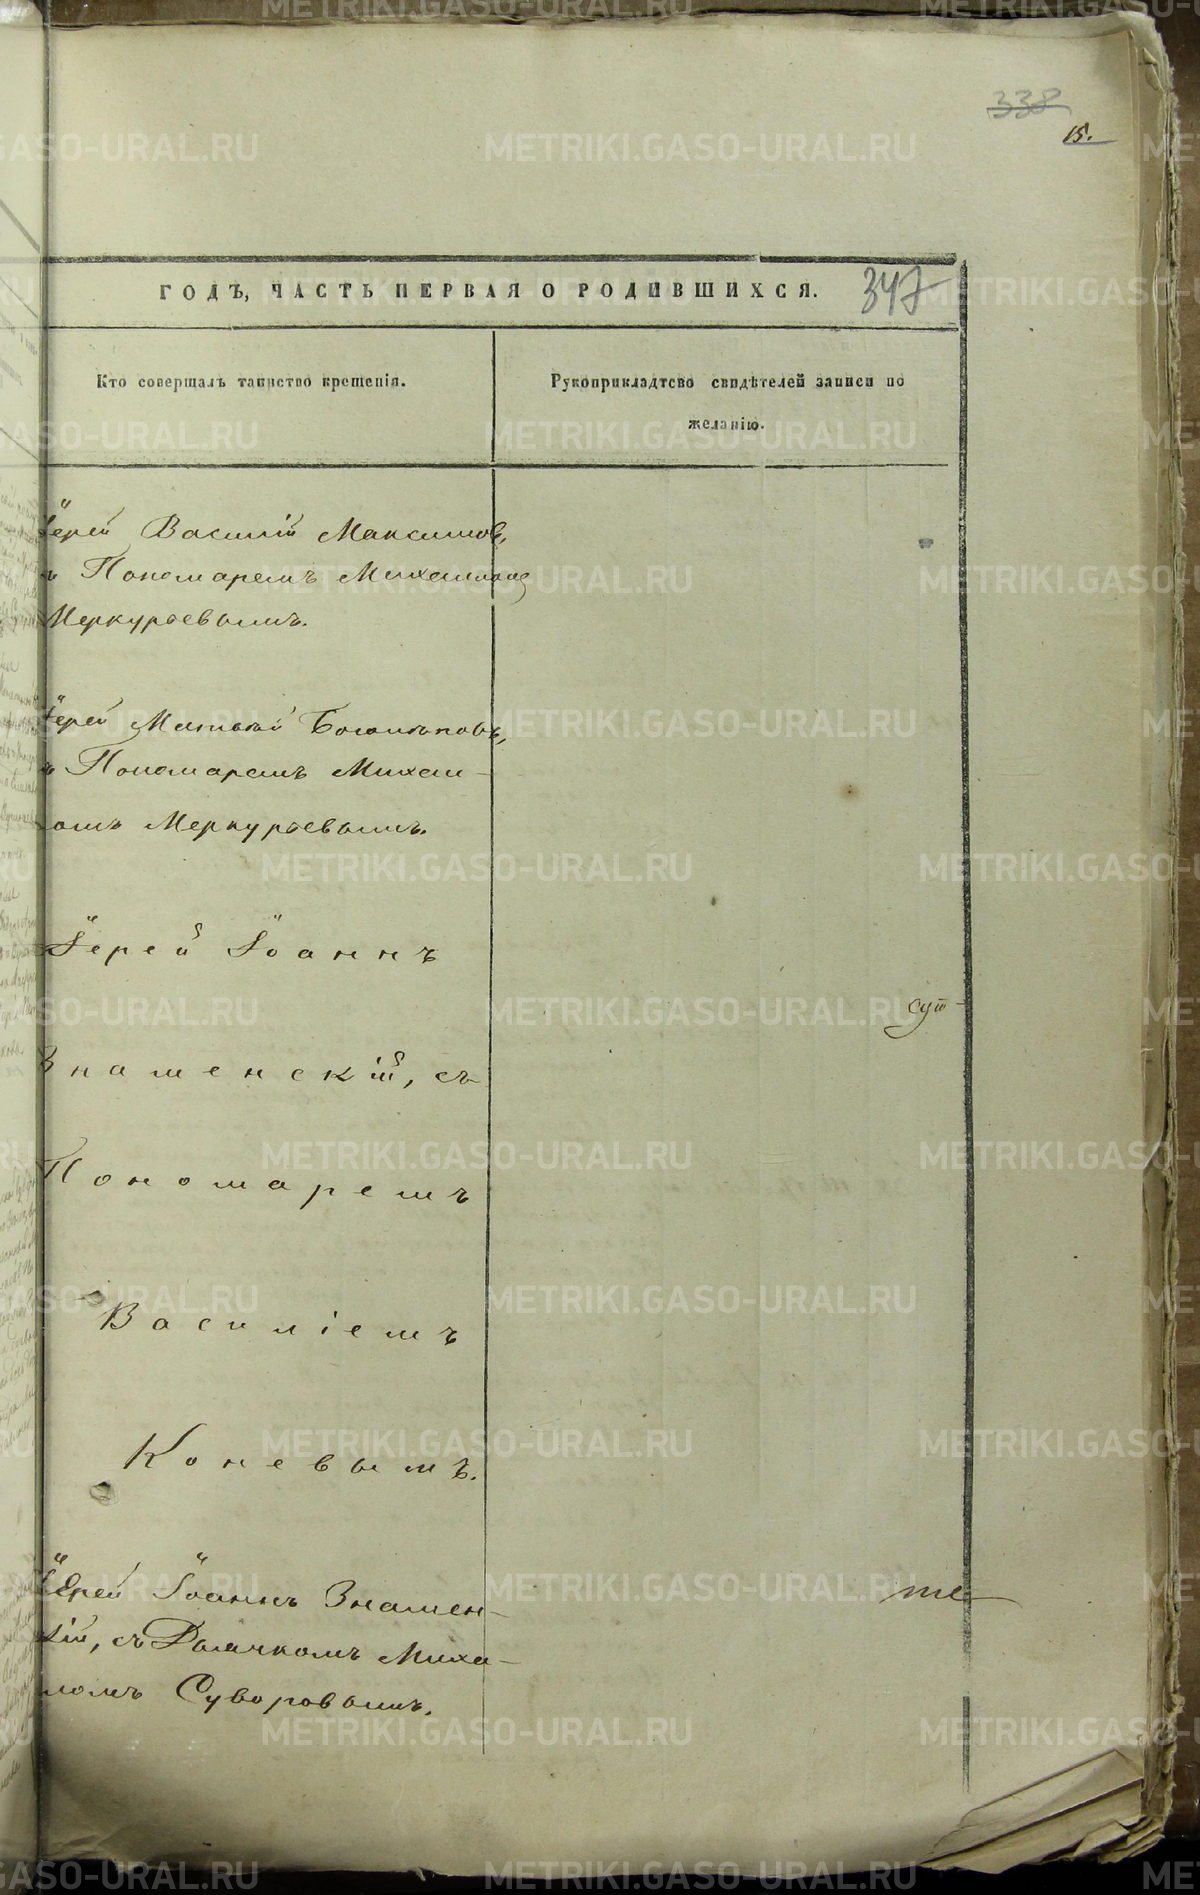 338
15.
ГОДЪ, ЧАСТЬ ПЕРВАЯ О РОДИВШИХСЯ.
347
Кто совершалъ таинство крещенія.
Рукоприкладтсво свидѣтелей записи по
желанію.
Іерей Василій Максимов,
Пономаремъ Михаиломъ
Меркурьевымъ.
Іерей Матвѣй Богомоловъ,
Пономаремъ Михаи-
ломъ Меркурьевымъ.
Іерей Іоаннъ
Знаменскій, съ
Пономаремъ
Василіемъ
Коневымъ.
Іерей Іоаннъ Знамен-
кій, съ Дьячкомъ Миха-
ломъ Суворовымъ.
METRIKI.GASO-URAL.RU